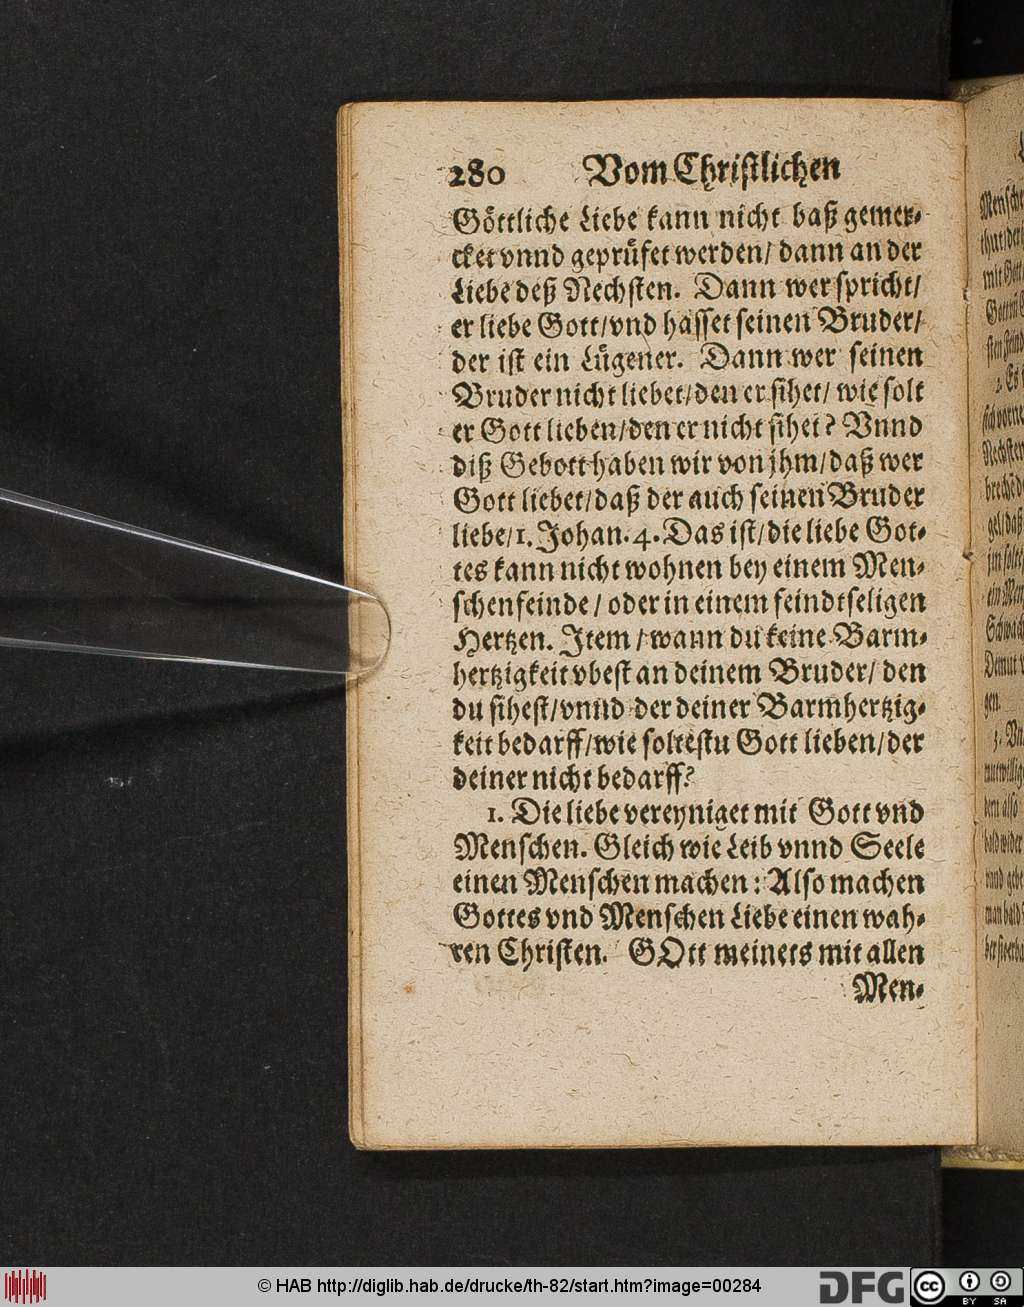 280 Vom Christlichen
Göttliche Liebe kann nicht baß gemer-
cket vnnd geprüfet werden/ dann an der
Liebe deß Nechsten. Dann wer spricht/
er liebe Gott/vnd hasset seinen Bruder/
der ist ein Lügener. Dann wer seinen
Bruder nicht liebet/den er sihet/ wie solt
er Gott lieben/den er nicht sihet? Vnnd
diß Gebott haben wir von jhm/daß wer
Gott liebet/daß der auch seinen Bruder
liebe/1. Johan. 4. Das ist/die liebe Got-
tes kann nicht wohnen bey einem Men-
schenfeinde / oder in einem feindtseligen
Hertzen. Item / wann du keine Barm-
hertzigkeit vbest an deinem Bruder/ den
du sihest/vnnd der deiner Barmhertzig-
keit bedarff/wie soltestu Gott lieben/der
deiner nicht bedarff?
1. Die liebe vereyniget mit Gott vnd
Menschen. Gleich wie Leib vnnd Seele
einen Menschen machen: Also machen
Gottes vnd Menschen Liebe einen wah-
ren Christen. GOtt meinets mit allen
Men-
© HAB http://diglib.hab.de/drucke/th-82/start.htm?image=00284
DFG
cc BY SA